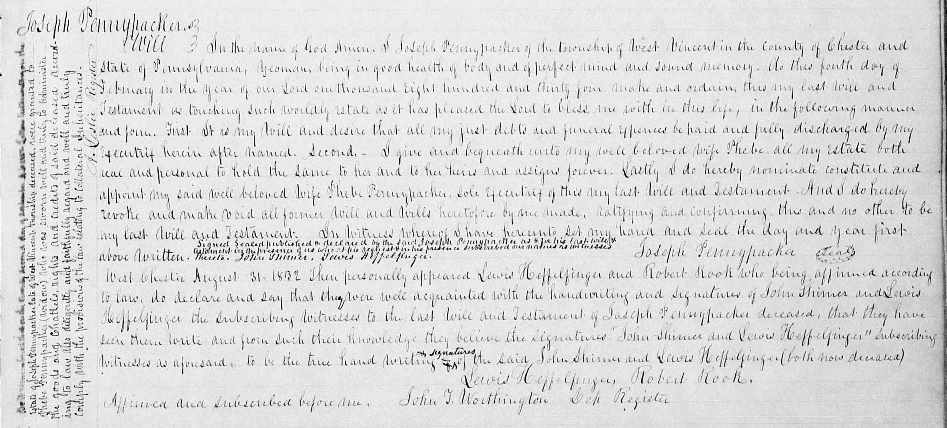 Joseph Pennypacker's
Will
In the name of God Amen. I Joseph Pennypacker of the township of West Vincent in the County of Chester and
State of Pennsylvania, Yeoman, being in good health of body and of perfect mind and sound memory. do this fourth day of
February in the year of our Lord one thousand eight hundred and thirty four make and ordain, this my last will and
Testament as touching such worldly estate as it has pleased the Lord to bless me with in this life, in the following manner
and form. First It is my Will and desire that all my just debts and funeral expences be paid and fully discharged by my
Executrix herein after named. Second. – I give and bequeath unto my well beloved Wife Phebe. all my Estate both
real and personal to hold the same to her and to her heirs and assigns forever. Lastly I do hereby nominate constitute and
appoint my said well beloved Wife Phebe Pennypacker, sole Executrix of this my last Will and Testament. And I do hereby
revoke and make void all former Will and Wills heretofore by me made, ratifying and confirming this and no other to be
my last Will and Testament. In Witness whereof I have hereunto set my hand and seal the day and year first
Signed Sealed published & declared by the said Joseph Pennypacker as & for his last will &
testament in the presence of us who at his request in his presence subscribed our names as witnesses
above written. thereto. John Shimer. Lewis Heffelfinger. Joseph Pennypacker Seal
West Chester August 31. 1832 Then personally appeared Lewis Heffelfinger and Robert Rook who being affirmed according
to law, do declare and say that they were well acquainted with the handwriting and signatures of John Shimer and Lewis
Heffelfinger the subscribing witnesses to the last Will and Testament of Joseph Pennypacker deceased, that they have
seen them write and from such their knowledge they believe the signatures "John Shimer and Lewis Heffelfinger" subscribing
witnesses as aforesaid, to be the true hand writing & signatures of the said John Shimer and Lewis Heffelfinger (both now deceased)
Lewis Heffelfinger Robert Rook.
Affirmed and subscribed before me. John T. Worthington Dep Register
Estate of Joseph Pennypacker late of West Vincent township deceased, were granted to
Phebe Pennypacker Executrix who was sworn well and truly to administer
the goods and Chattels, rights and Credits of said deceased accord-
ing to law also diligently and faithfully regard and well and truly
comply with the provisions of the law relating to Collateral Inheritances.
Register